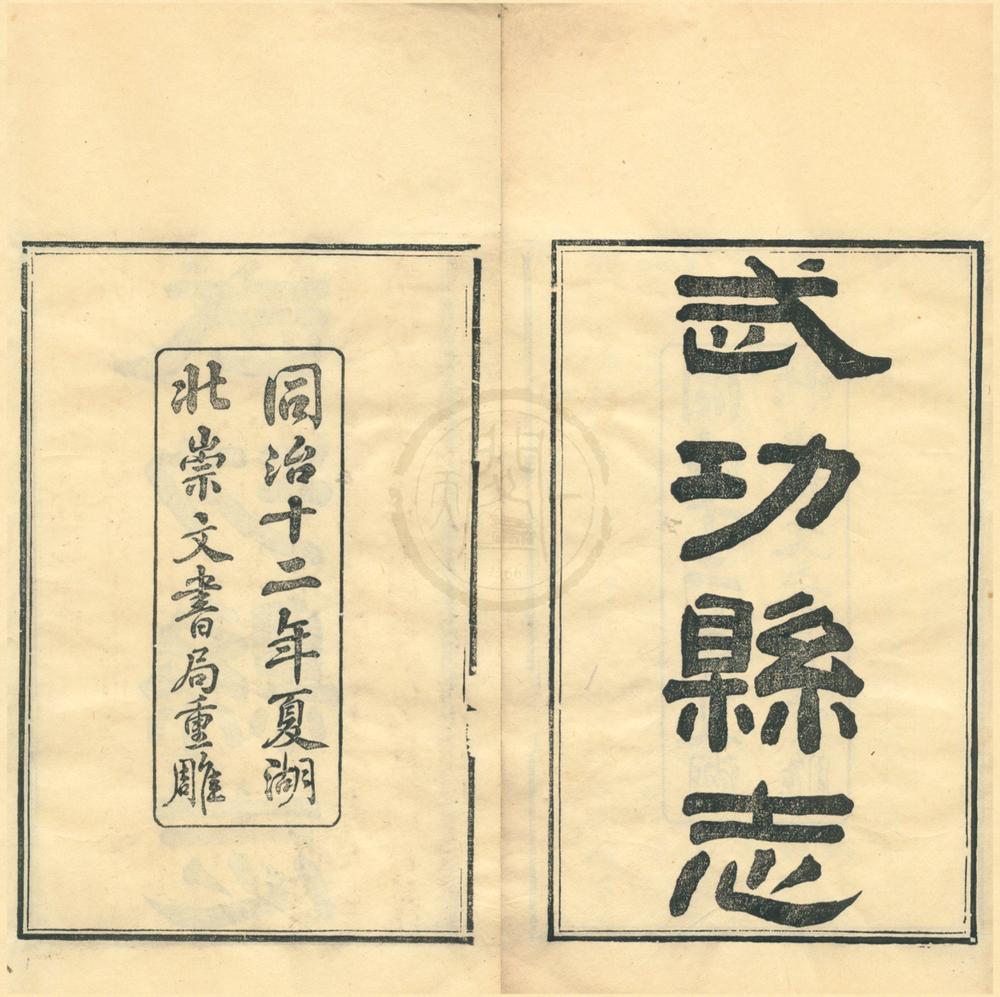 武功縣志
同治十二年夏湖
北崇文書局重雕